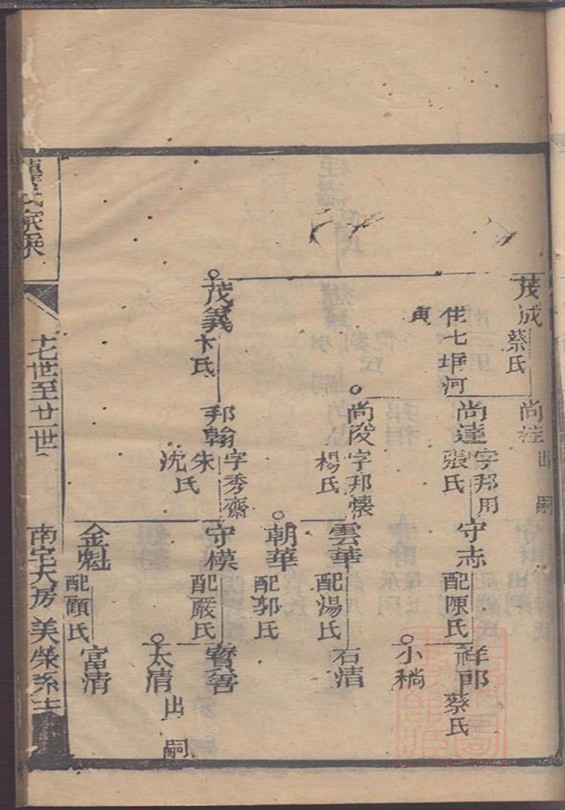 茂成
蔡氏
住七垻河
茂義
卞氏
尚達
字邦用
張氏
尚陵
字邦懐
楊氏
邦翰
字秀齋
朱
沈氏
出嗣
守赤
配陳氏
雲華
配湯氏
朝華
配郭氏
守模
配嚴氏
金魁
配顧氏
祥郎
蔡氏
小稱
石清
寳善
太清
出嗣
富清
七世至廿一世
南宅大房
美榮系